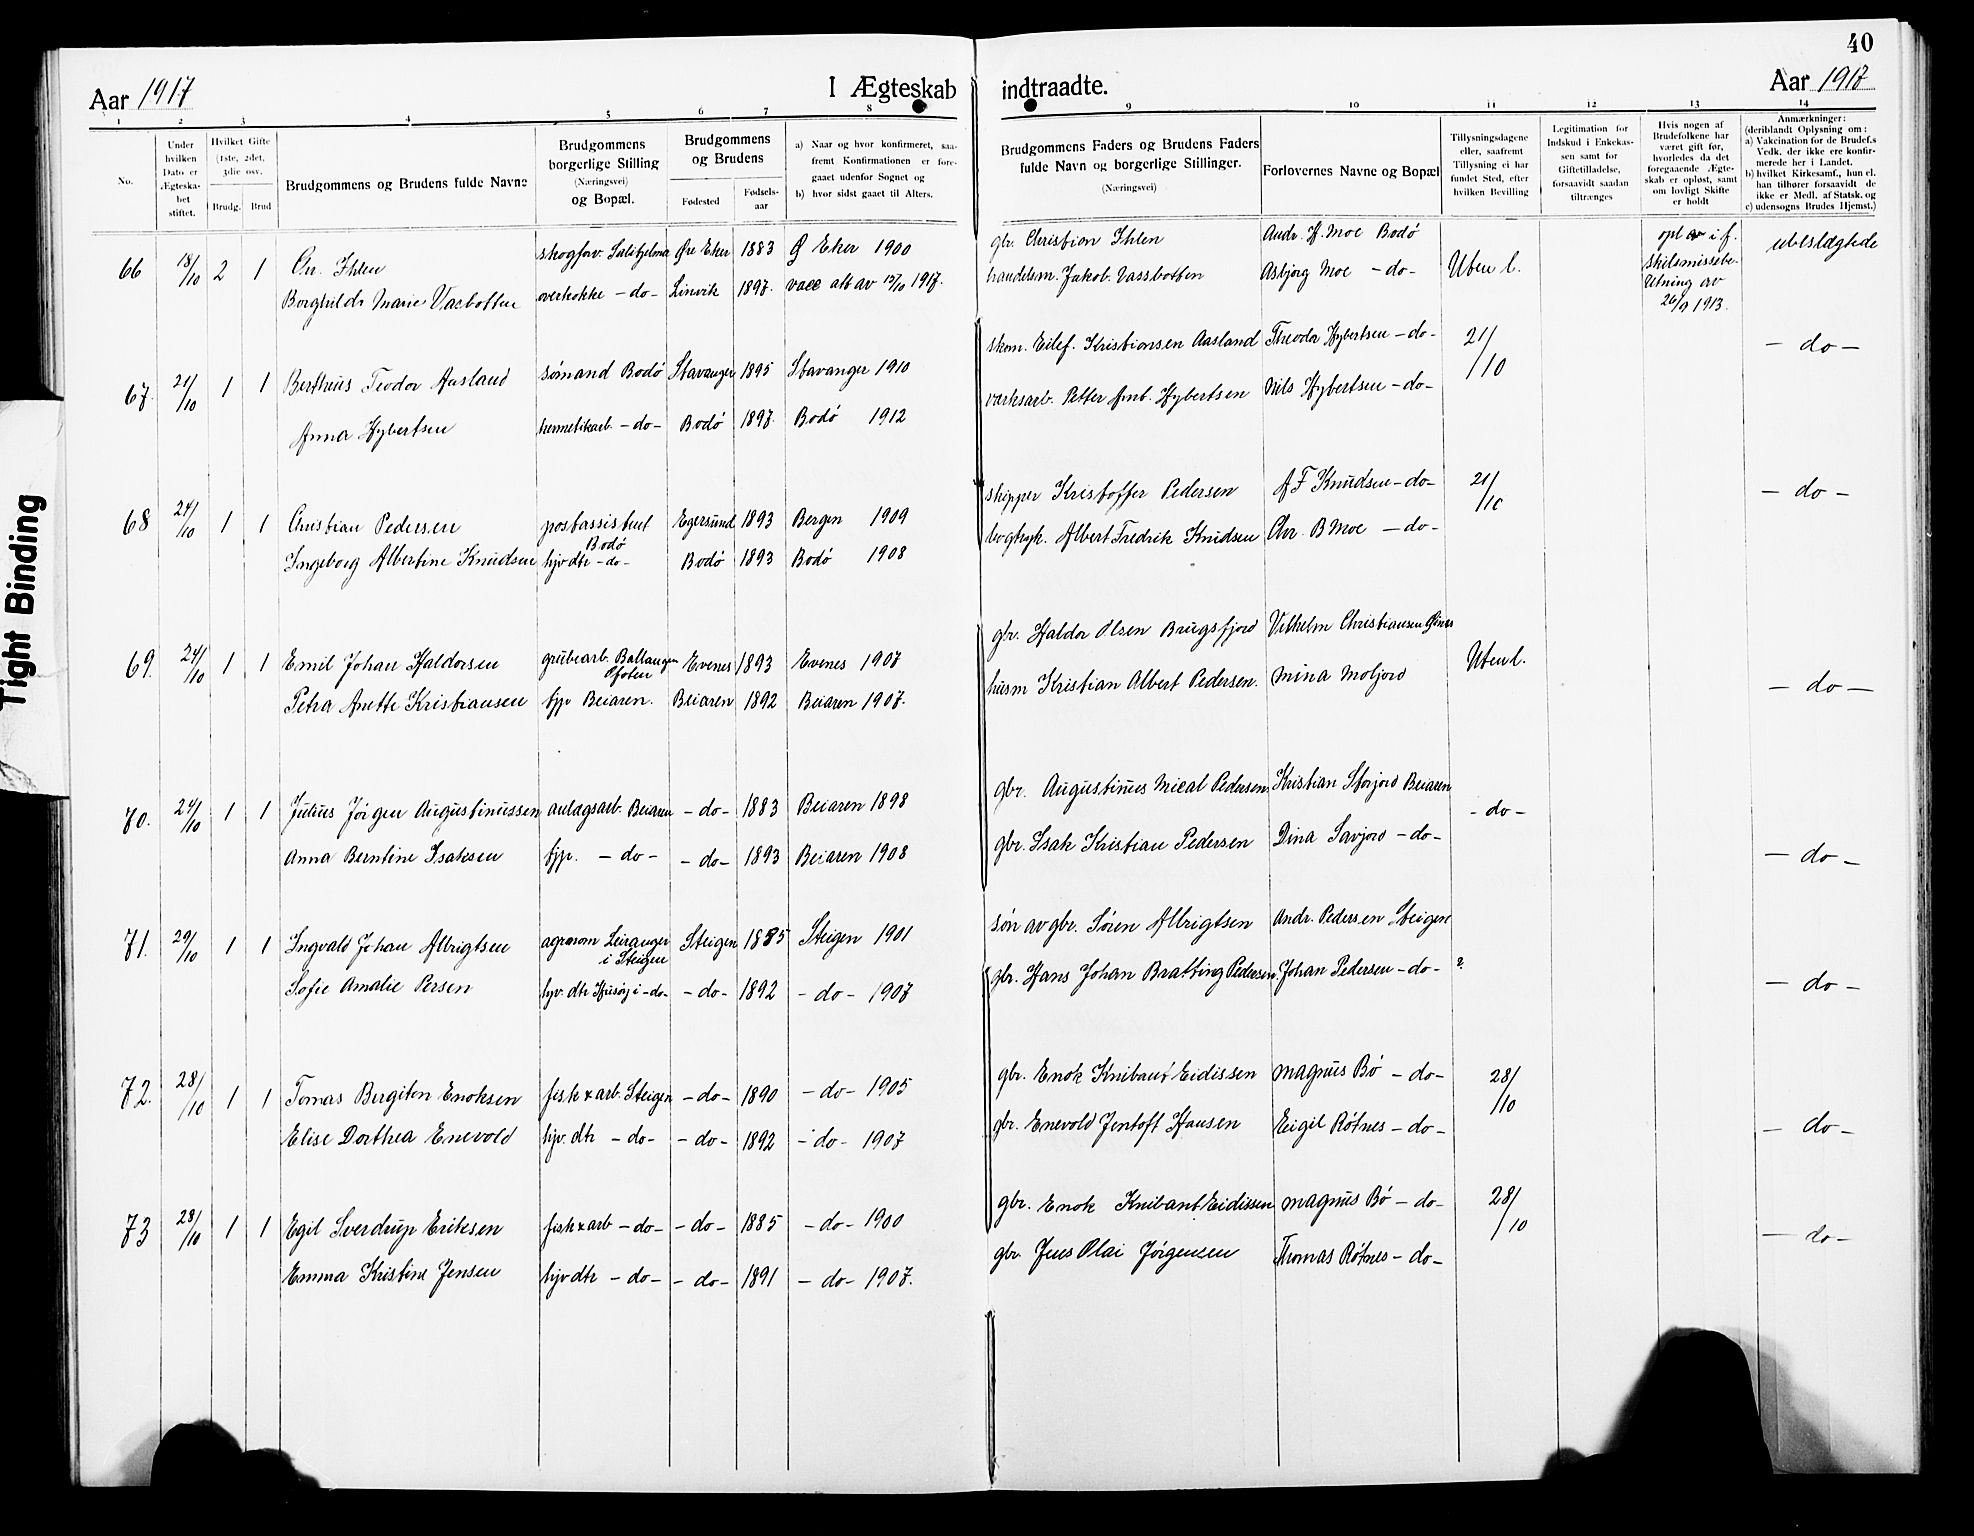 40
Aar 1917
I Ægteskab
indtraadte.
Aar 1917
1 2 3 4 5 6 7 8 9 10 11 12 13 14
No.
Under
hvilken
Dato er
Ægteska-
bet
stiftet.
Hvilket Gifte
(1ste, 2det,
3die osv.
Brudg. Brud
Brudgommens og Brudens fulde Navne
Brudgommens
borgerlige Stilling
(Næringsvei)
og Bopæl.
Brudgommens
og Brudens
Fødested
Fødsels-
aar
a) Naar og hvor konfirmeret, saa-
fremt Konfirmationen er fore-
gaaet udenfor Sognet og
b) hvor sidst gaaet til Alters.
Brudgommens Faders og Brudens Faders
fulde Navn og borgerlige Stillinger.
(Næringsvei)
Forlovernes Navne og Bopæl
Tillysningsdagene
eller, saafremt
Tillysning ei har
fundet Sted, efter
hvilken Bevilling
Legitimation for
Indskud i Enkekas-
sen samt for
Giftetilladelse,
forsaavidt saadan
tiltrænges
Hvis nogen af
Brudefolkene har
været gift før,
hvorledes da det
foregaaende Ægte-
skab er opløst, samt
om lovligt Skifte
er holdt
Anmærkninger:
(deriblandt Oplysning om:
a) Vakcination for de Brudef.s
Vedk. der ikke ere konfir-
merede her i Landet.
b) hvilket Kirkesamf., hun el.
han tilhører forsaavidt de
ikke er Medl. af Statsk. og
c) udensogns Brudes Hjemst.)
66 18/10 2 1 On. Ihlen skogforv. Sulitjelma Øvre Eker 1883 Ø Eker 1900 gbr. Christian Ihlen Andr. H. Moe Bodø Uten l. opl av i f. ubeslægtede
skilsmissebe-
Borghild Marie Vasbotten overkokke - do - Linvik 1897. vacc att av 15/10 1917. handelsm. Jakob Vassbotten Asbjørg Moe - do - vilning av
26/9 1913.
67. 21/10 1 1 Bertheus Teodor Aasland sømand Bodø Stavanger 1895 Stavanger 1910 skom. Eilef. Kristiansen Aasland Theodor Hybertsen - do - 21/10 - do -
Anna Hybertsen hermetikarb. - do - Bodø 1897. Bodø 1912 værksarb. Petter Amb. Hybertsen Nils Hybertsen - do -
68 24/10 1 1 Christian Pedersen postassistent Egersund 1893 Bergen 1909 skipper Kristoffer Pedersen A F Knudsen - do - 21/10 - do -
Bodø
Ingeborg Albertine Knudsen hjv dtr - do - Bodø 1893 Bodø 1908 bogtryk. Albert Fredrik Knudsen Chr. B Moe - do -
69. 24/10 1 1 Emil Johan Haldorsen grubearb. Ballangen Evenes 1893 Evenes 1907 gbr. Haldor Olsen Brugsfjord Vilhelm Christiansen Uten l. - do -
Ofoten
Petra Anette Kristiansen tjp Beiaren. Beiaren 1892 Beiaren 1907. husm Kristian Albert Pedersen. Mina Moljord
70. 24/10 1 1 Julius Jørgen Augustinussen anlægsarb. Beiaren - do - 1883 Beiaren 1898 gbr. Augustinus Mical Pedersen Kristian Storjord Beiaren - do - - do -
Anna Berntine Isaksen tjp. - do - - do - 1893 Beiaren 1908 gbr. Isak Kristian Pedersen Dina Savjord - do -
71. 29/10 1 1 Ingvald Johan Albrigtsen agronom Leiranger Steigen 1885 Steigen 1901 søn av gbr. Søren Albrigtsen Andr. Pedersen Steigen ? - do -
i Steigen
Sofie Amalie Persen hjv. dtr Husøy i - do - - do - 1892 - do - 1907 gbr. Hans Johan Bratting Pedersen Johan Pedersen - do -
72. 28/10 1 1 Tomas Bergiton Enoksen fisk & arb. Steigen - do - 1890 - do - 1905 gbr. Enok Knibant Eidissen Magnus Bø - do - 28/10 - do -
Elise Dorthea Enevold hjv. dtr - do - - do - 1892 - do - 1907 gbr. Enevold Jentoft Hansen Eigil Røtnes - do -
73 28/10 1 1 Egil Sverdrup Eriksen fisk & arb - do - - do - 1885 - do - 1900 gbr. Enok Knibant Eidissen Magnus Bø - do - 28/10 - do -
Emma Kristine Jensen hjv dtr - do - - do - 1891 - do - 1907. gbr Jens Olai Jørgensen Thomas Røtnes - do -
Tight Binding